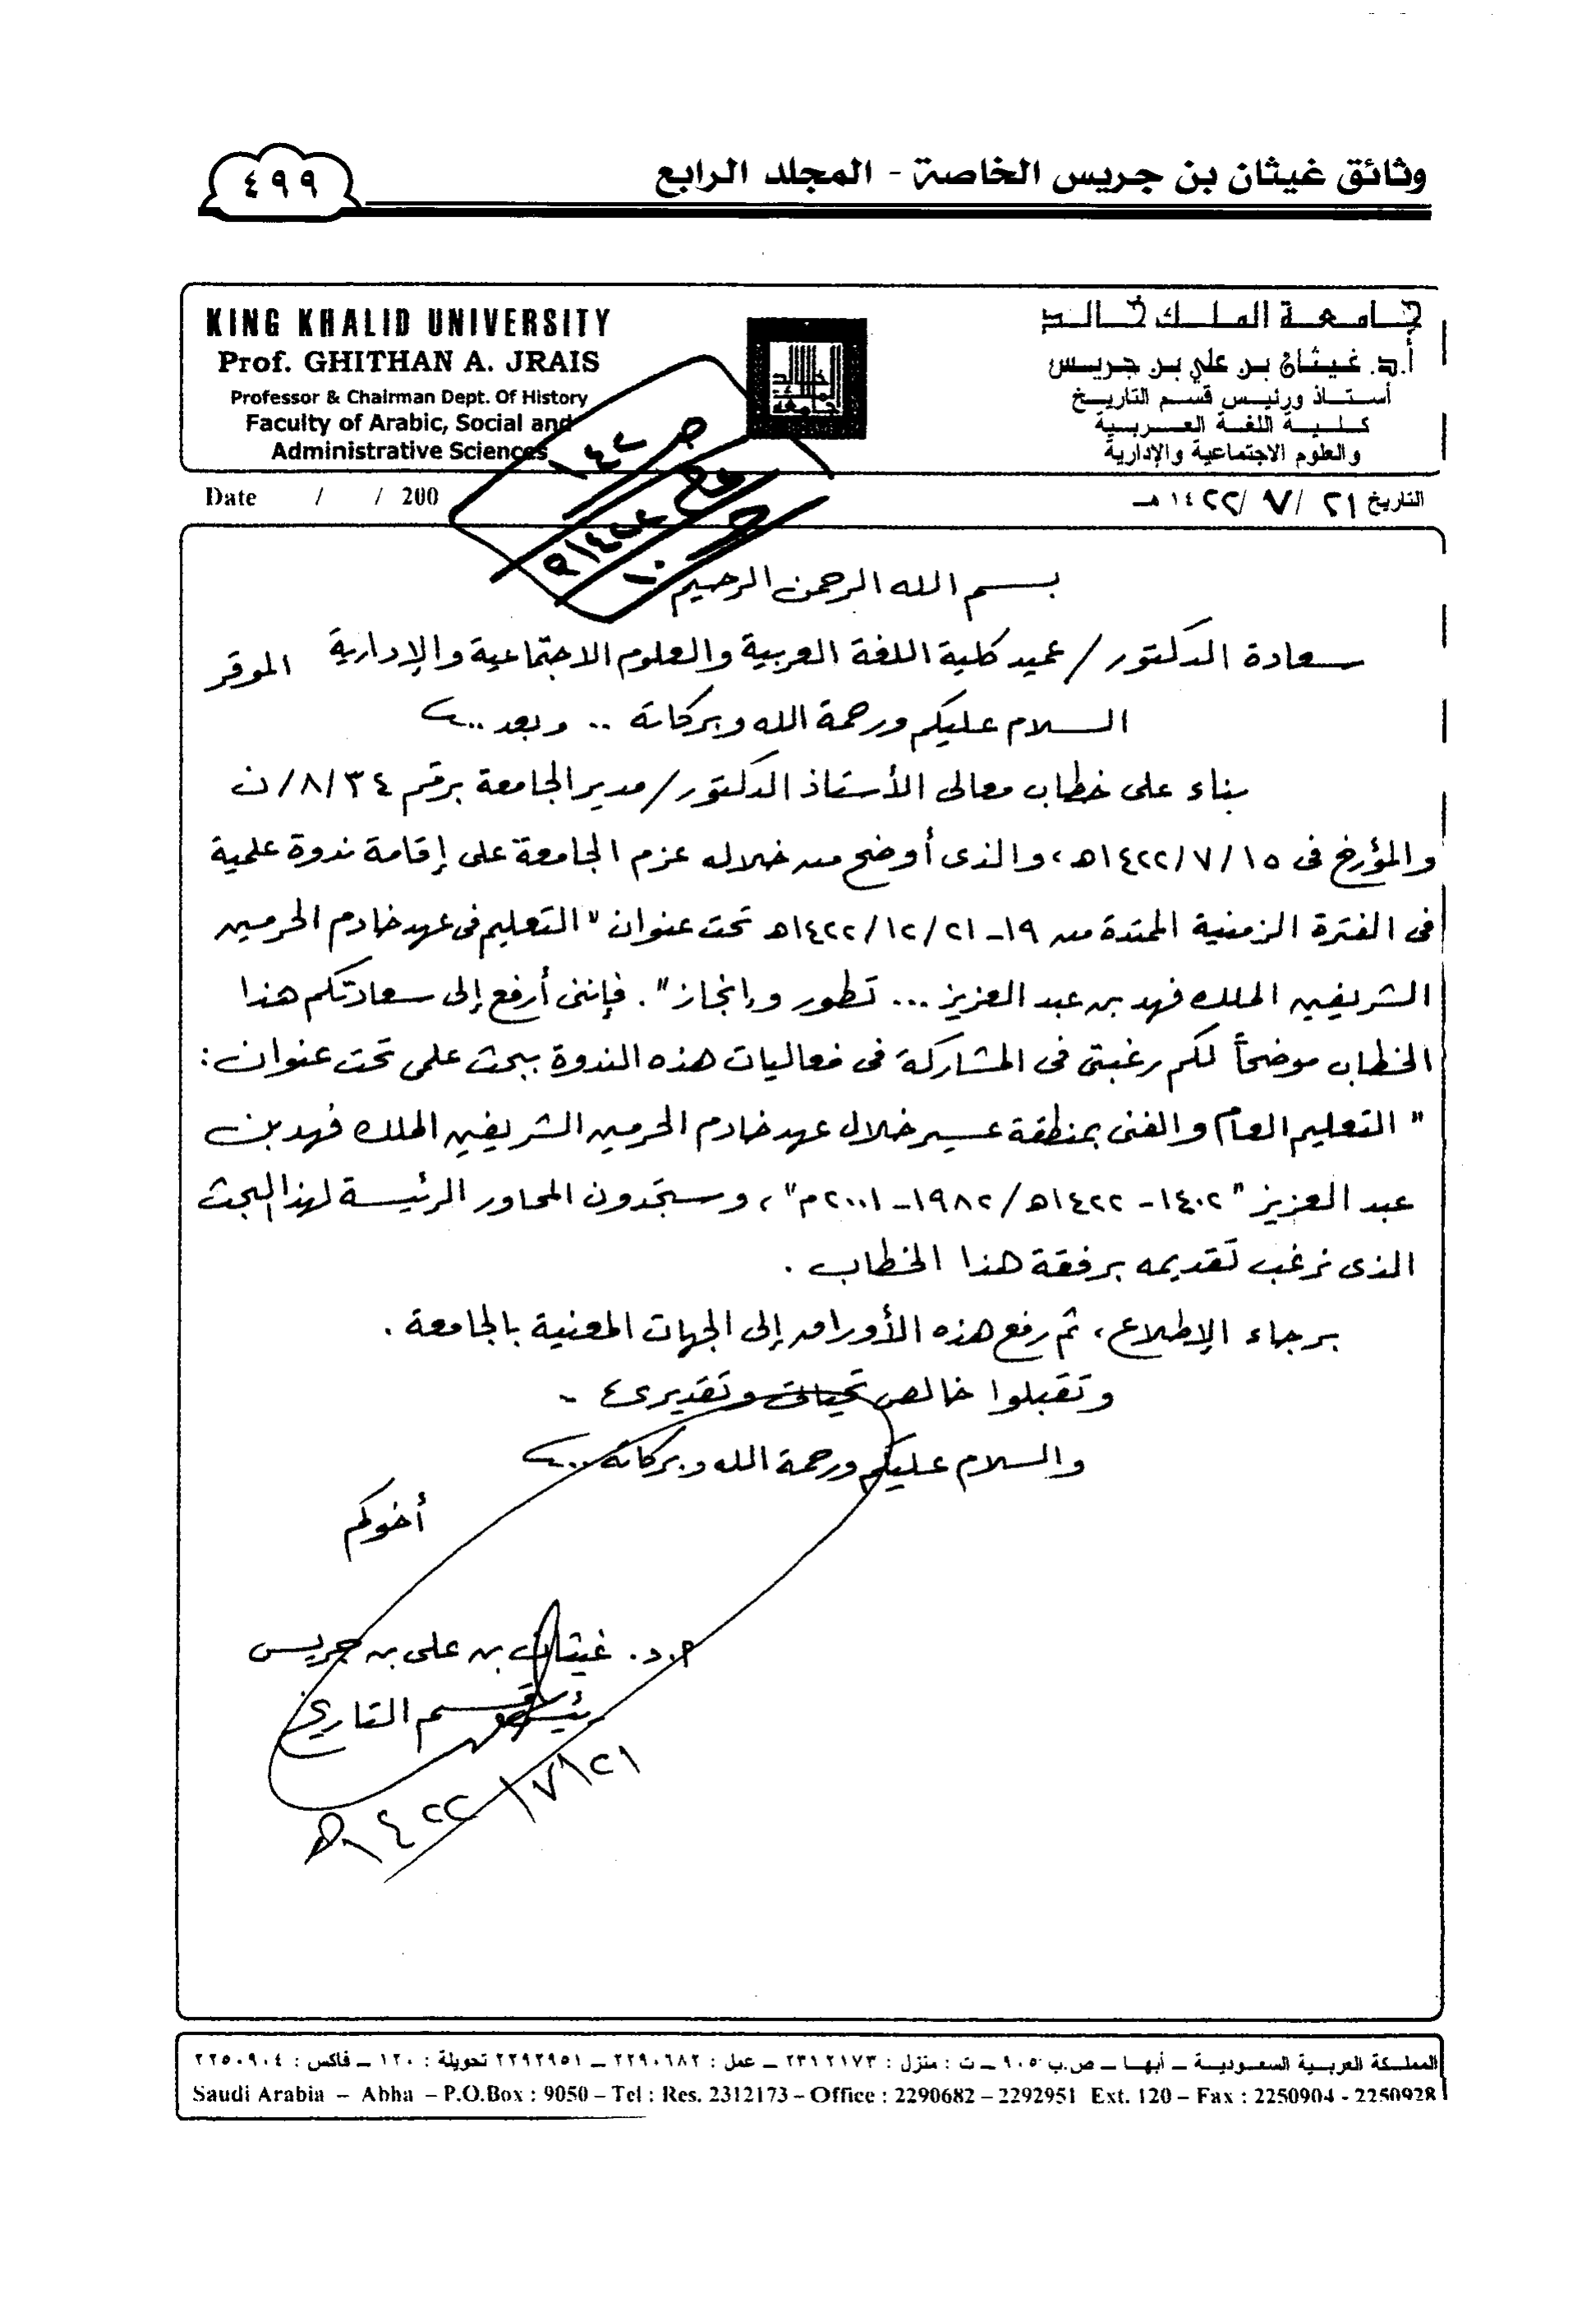 وثائق غيثان بن جريس الخاصة - المجلد الرابع
٤٩٩
KING KHALID UNIVERSITY
Prof. GHITHAN A. JRAIS
Professor & Chairman Dept. Of History
Faculty of Arabic, Social and
Administrative Sciences
جامعة الملك خالد
أ.د. غيثان بن علي بن جريس
أستاذ ورئيس قسم التاريخ
كلية اللغة العربية
والعلوم الاجتماعية والإدارية
Date / / 200
التاريخ ٢١ / ٧ / ١٤٢٢ هـ
بسم الله الرحمن الرحيم
سعادة الدكتور / عميد كلية اللغة العربية والعلوم الاجتماعية والإدارية الموقر
السلام عليكم ورحمة الله وبركاته .. وبعد ..
بناء على خطاب معالى الأستاذ الدكتور / مدير الجامعة برقم ٨/٣٤/ن
والمؤرخ فى ١٤٢٢/٧/١٥هـ، والذى أوضح من خلاله عزم الجامعة على إقامة ندوة علمية
فى الفترة الزمنية الممتدة من ١٩-١٤٢٢/١٢/٢١هـ تحت عنوان "التعليم فى عهد خادم الحرمين
الشريفين الملك فهد بن عبد العزيز ... تطور وإنجاز". فإننى أرفع إلى سعادتكم هذا
الخطاب موضحاً لكم رغبتى فى المشاركة فى فعاليات هذه الندوة ببحث علمى تحت عنوان:
"التعليم العام والفنى بمنطقة عسير خلال عهد خادم الحرمين الشريفين الملك فهد بن
عبد العزيز "١٤٠٢-١٤٢٢هـ/١٩٨٢-٢٠٠١م"، وستجدون المحاور الرئيسة لهذا البحث
الذى نرغب تقديمه برفقة هذا الخطاب .
برجاء الإطلاع، ثم رفع هذه الأوراق إلى الجهات المعنية بالجامعة .
وتقبلوا خالص تحياتى وتقديرى ،
والسلام عليكم ورحمة الله وبركاته ...
أخوكم
أ.د. غيثان بن على بن جريس
رئيس قسم التاريخ
٢١/٧/١٤٢٢هـ
المملكة العربية السعودية – أبها – ص.ب ٩٠٥٠ – ت : منزل : ٢٣١٢١٧٣ – عمل : ٢٢٩٠٦٨٢ – ٢٢٩٢٩٥١ تحويلة : ١٢٠ – فاكس : ٢٢٥٠٩٠٤
Saudi Arabia – Abha – P.O.Box : 9050 – Tel : Res. 2312173 – Office : 2290682 – 2292951 Ext. 120 – Fax : 2250904 - 2250928